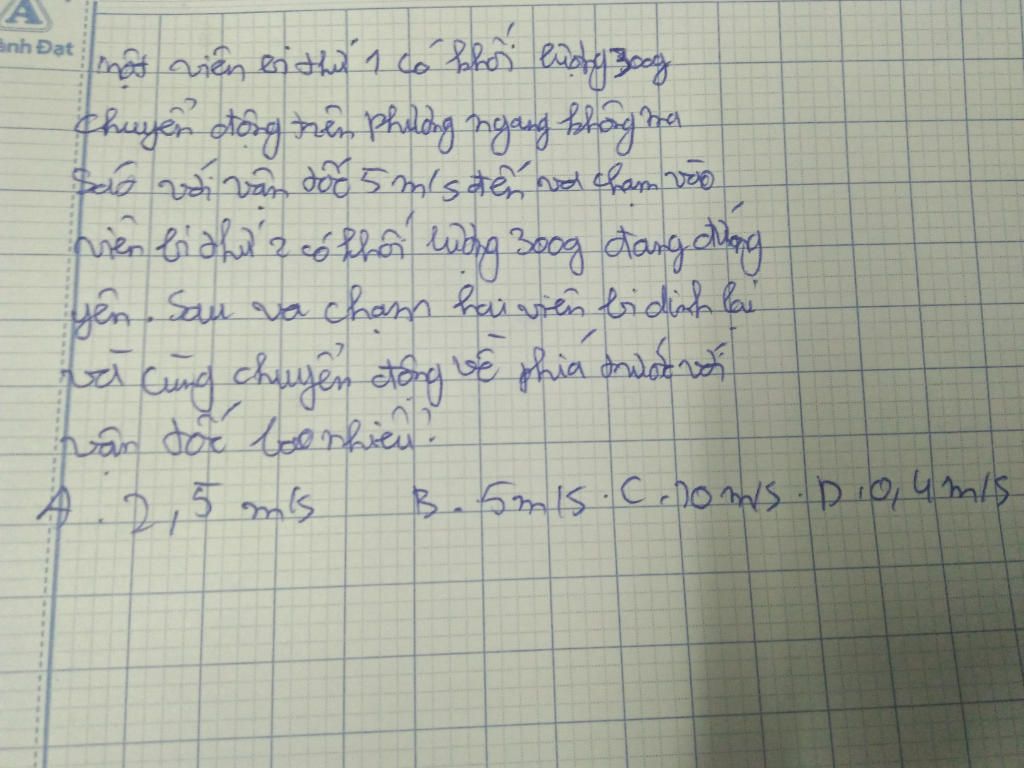 A
ành Đạt
một viên bi thứ 1 có khối lượng 300g
chuyển động trên phương ngang không ma
sáo với vận tốc 5 m/s đến va chạm vào
viên bi thứ 2 có khối lượng 300g đang đứng
yên. Sau va chạm hai viên bi dính lại
và cùng chuyển động về phía trước với
vận tốc bao nhiêu?
A. 2,5 m/s B. 5m/s. C. 10 m/s. D. 0,4m/s